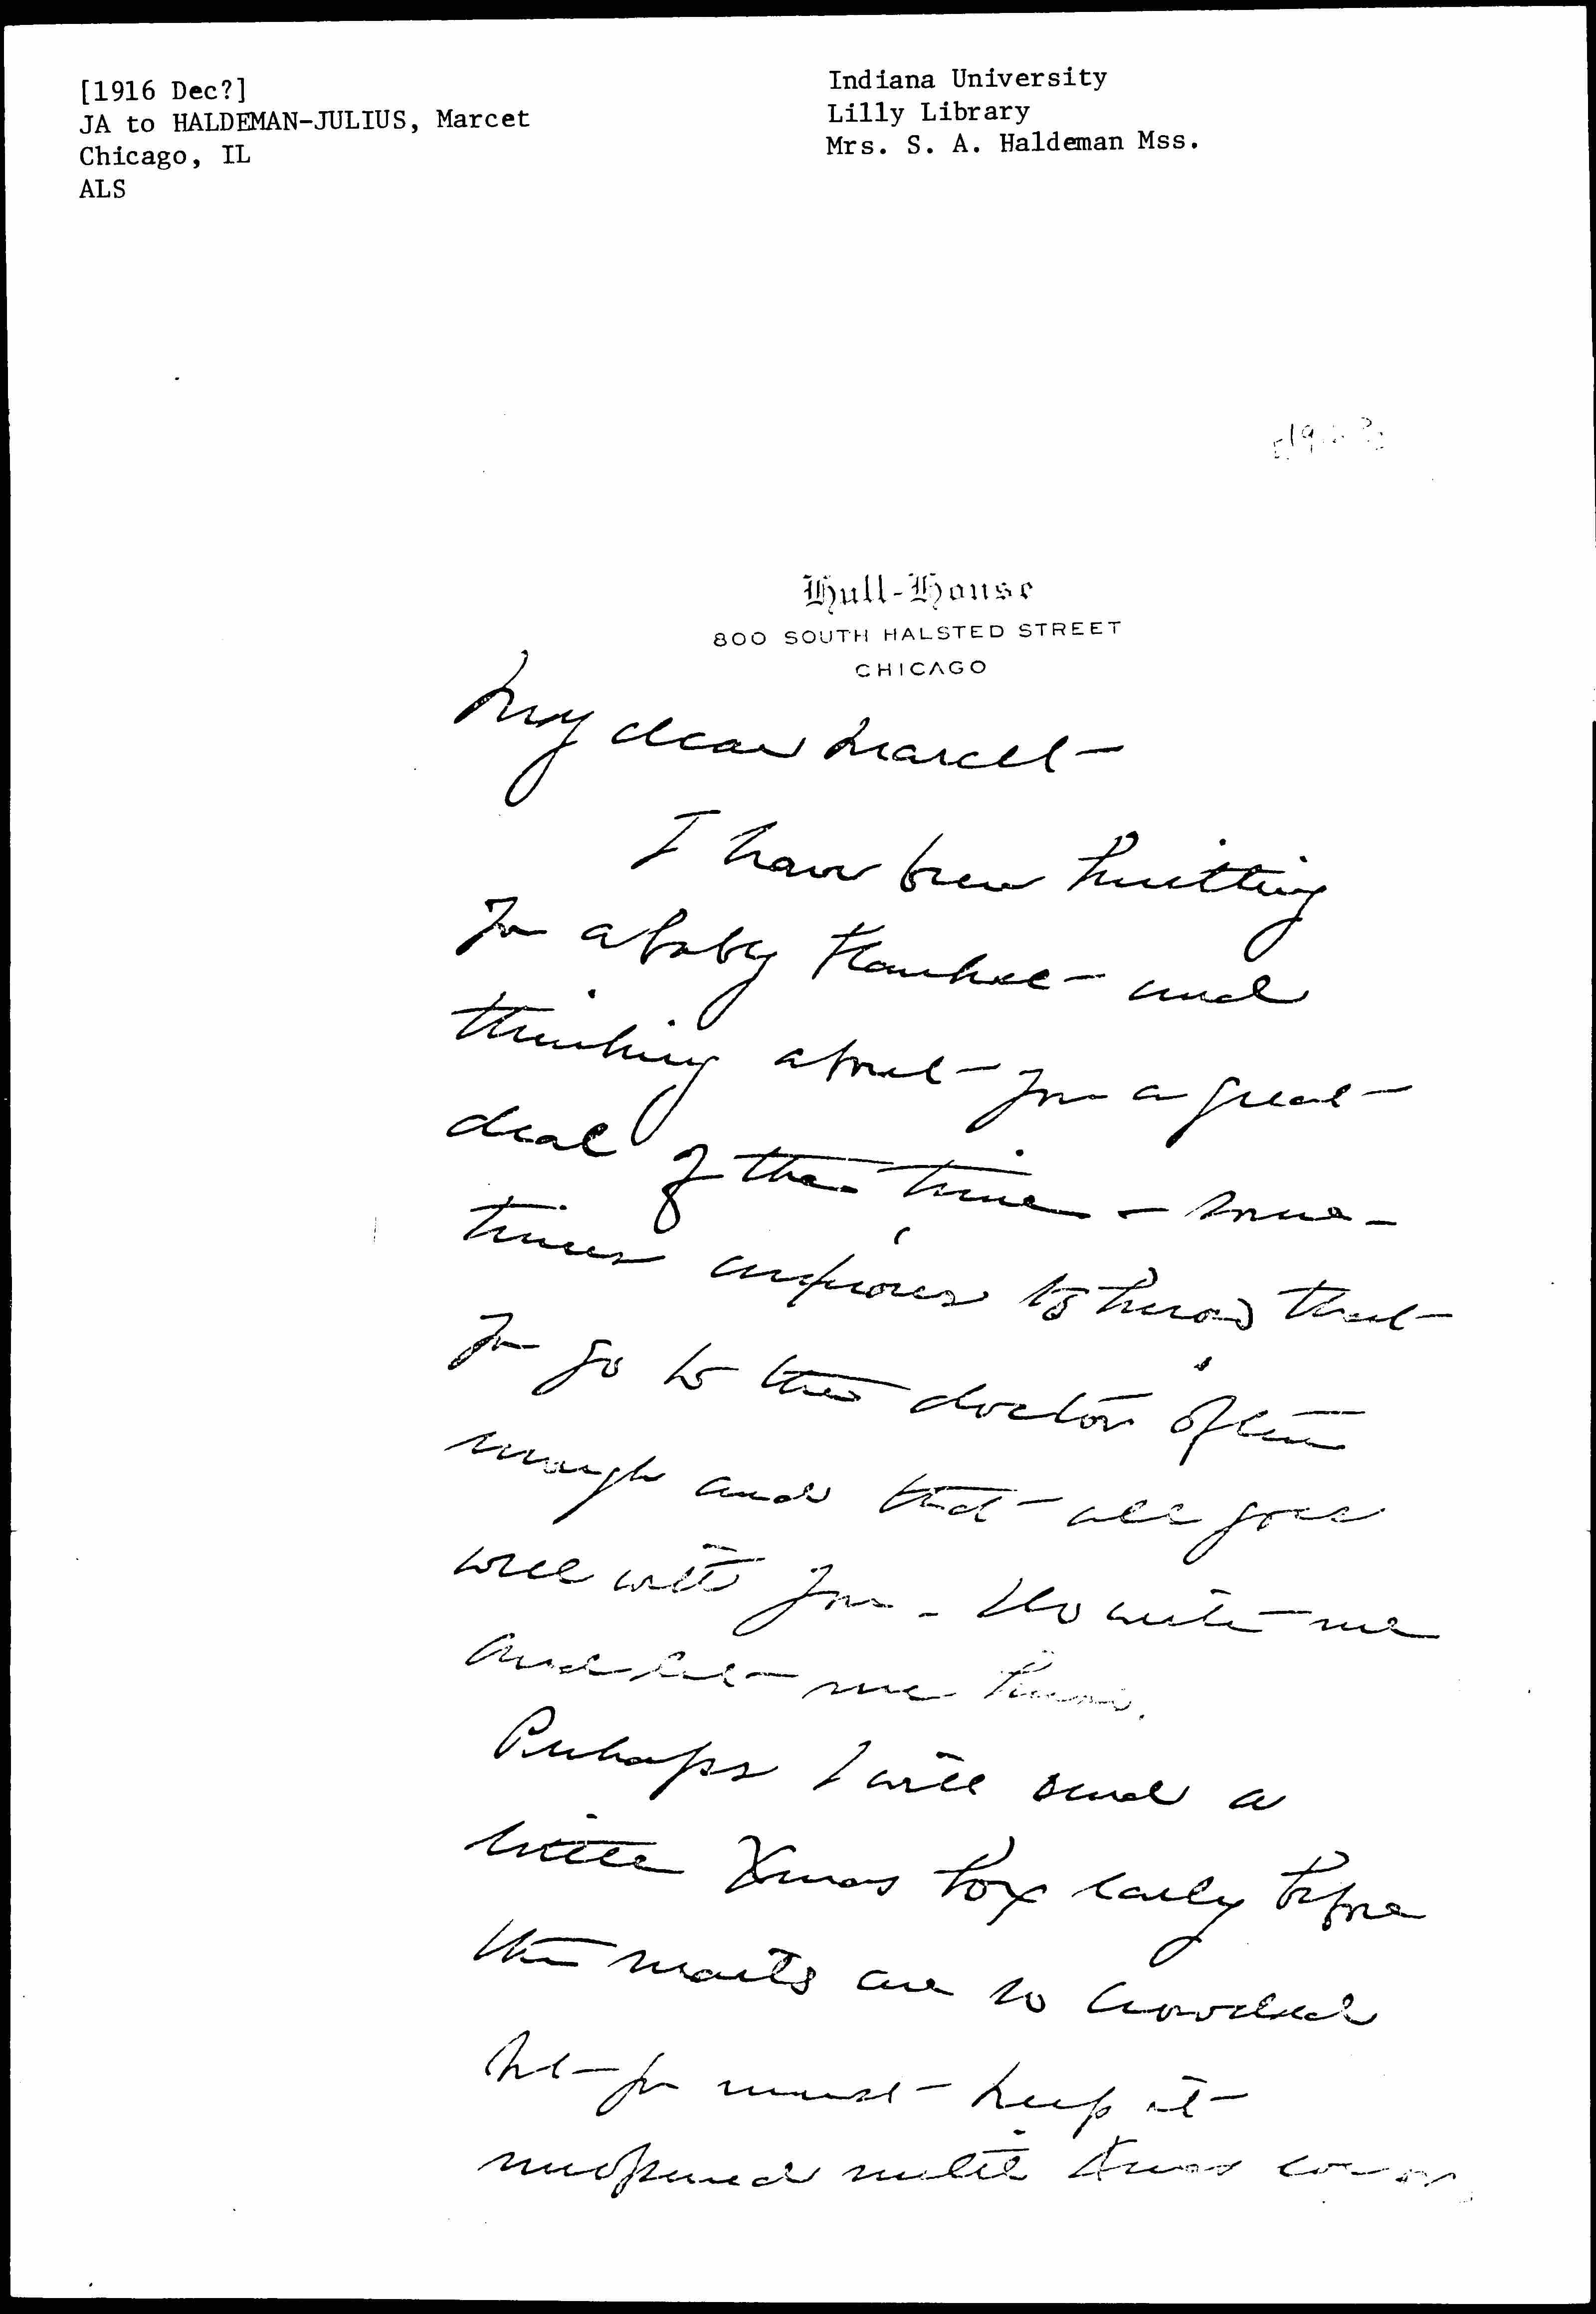 [1916 Dec?]
JA to HALDEMAN-JULIUS, Marcet
Chicago, IL
ALS
Indiana University
Lilly Library
Mrs. S. A. Haldeman Mss.
Hull-House
800 SOUTH HALSTED STREET
CHICAGO
My dear Marcet-
I have been knitting
you a baby blanket and
thinking about you a great
deal of the time - some-
times anxious to know that
you go to the doctor often
enough and that all goes
well with you - Do write me
and let me know.
Perhaps I will send a
little Xmas box early before
the mails are so crowded
but you must keep it
unopened until Xmas comes